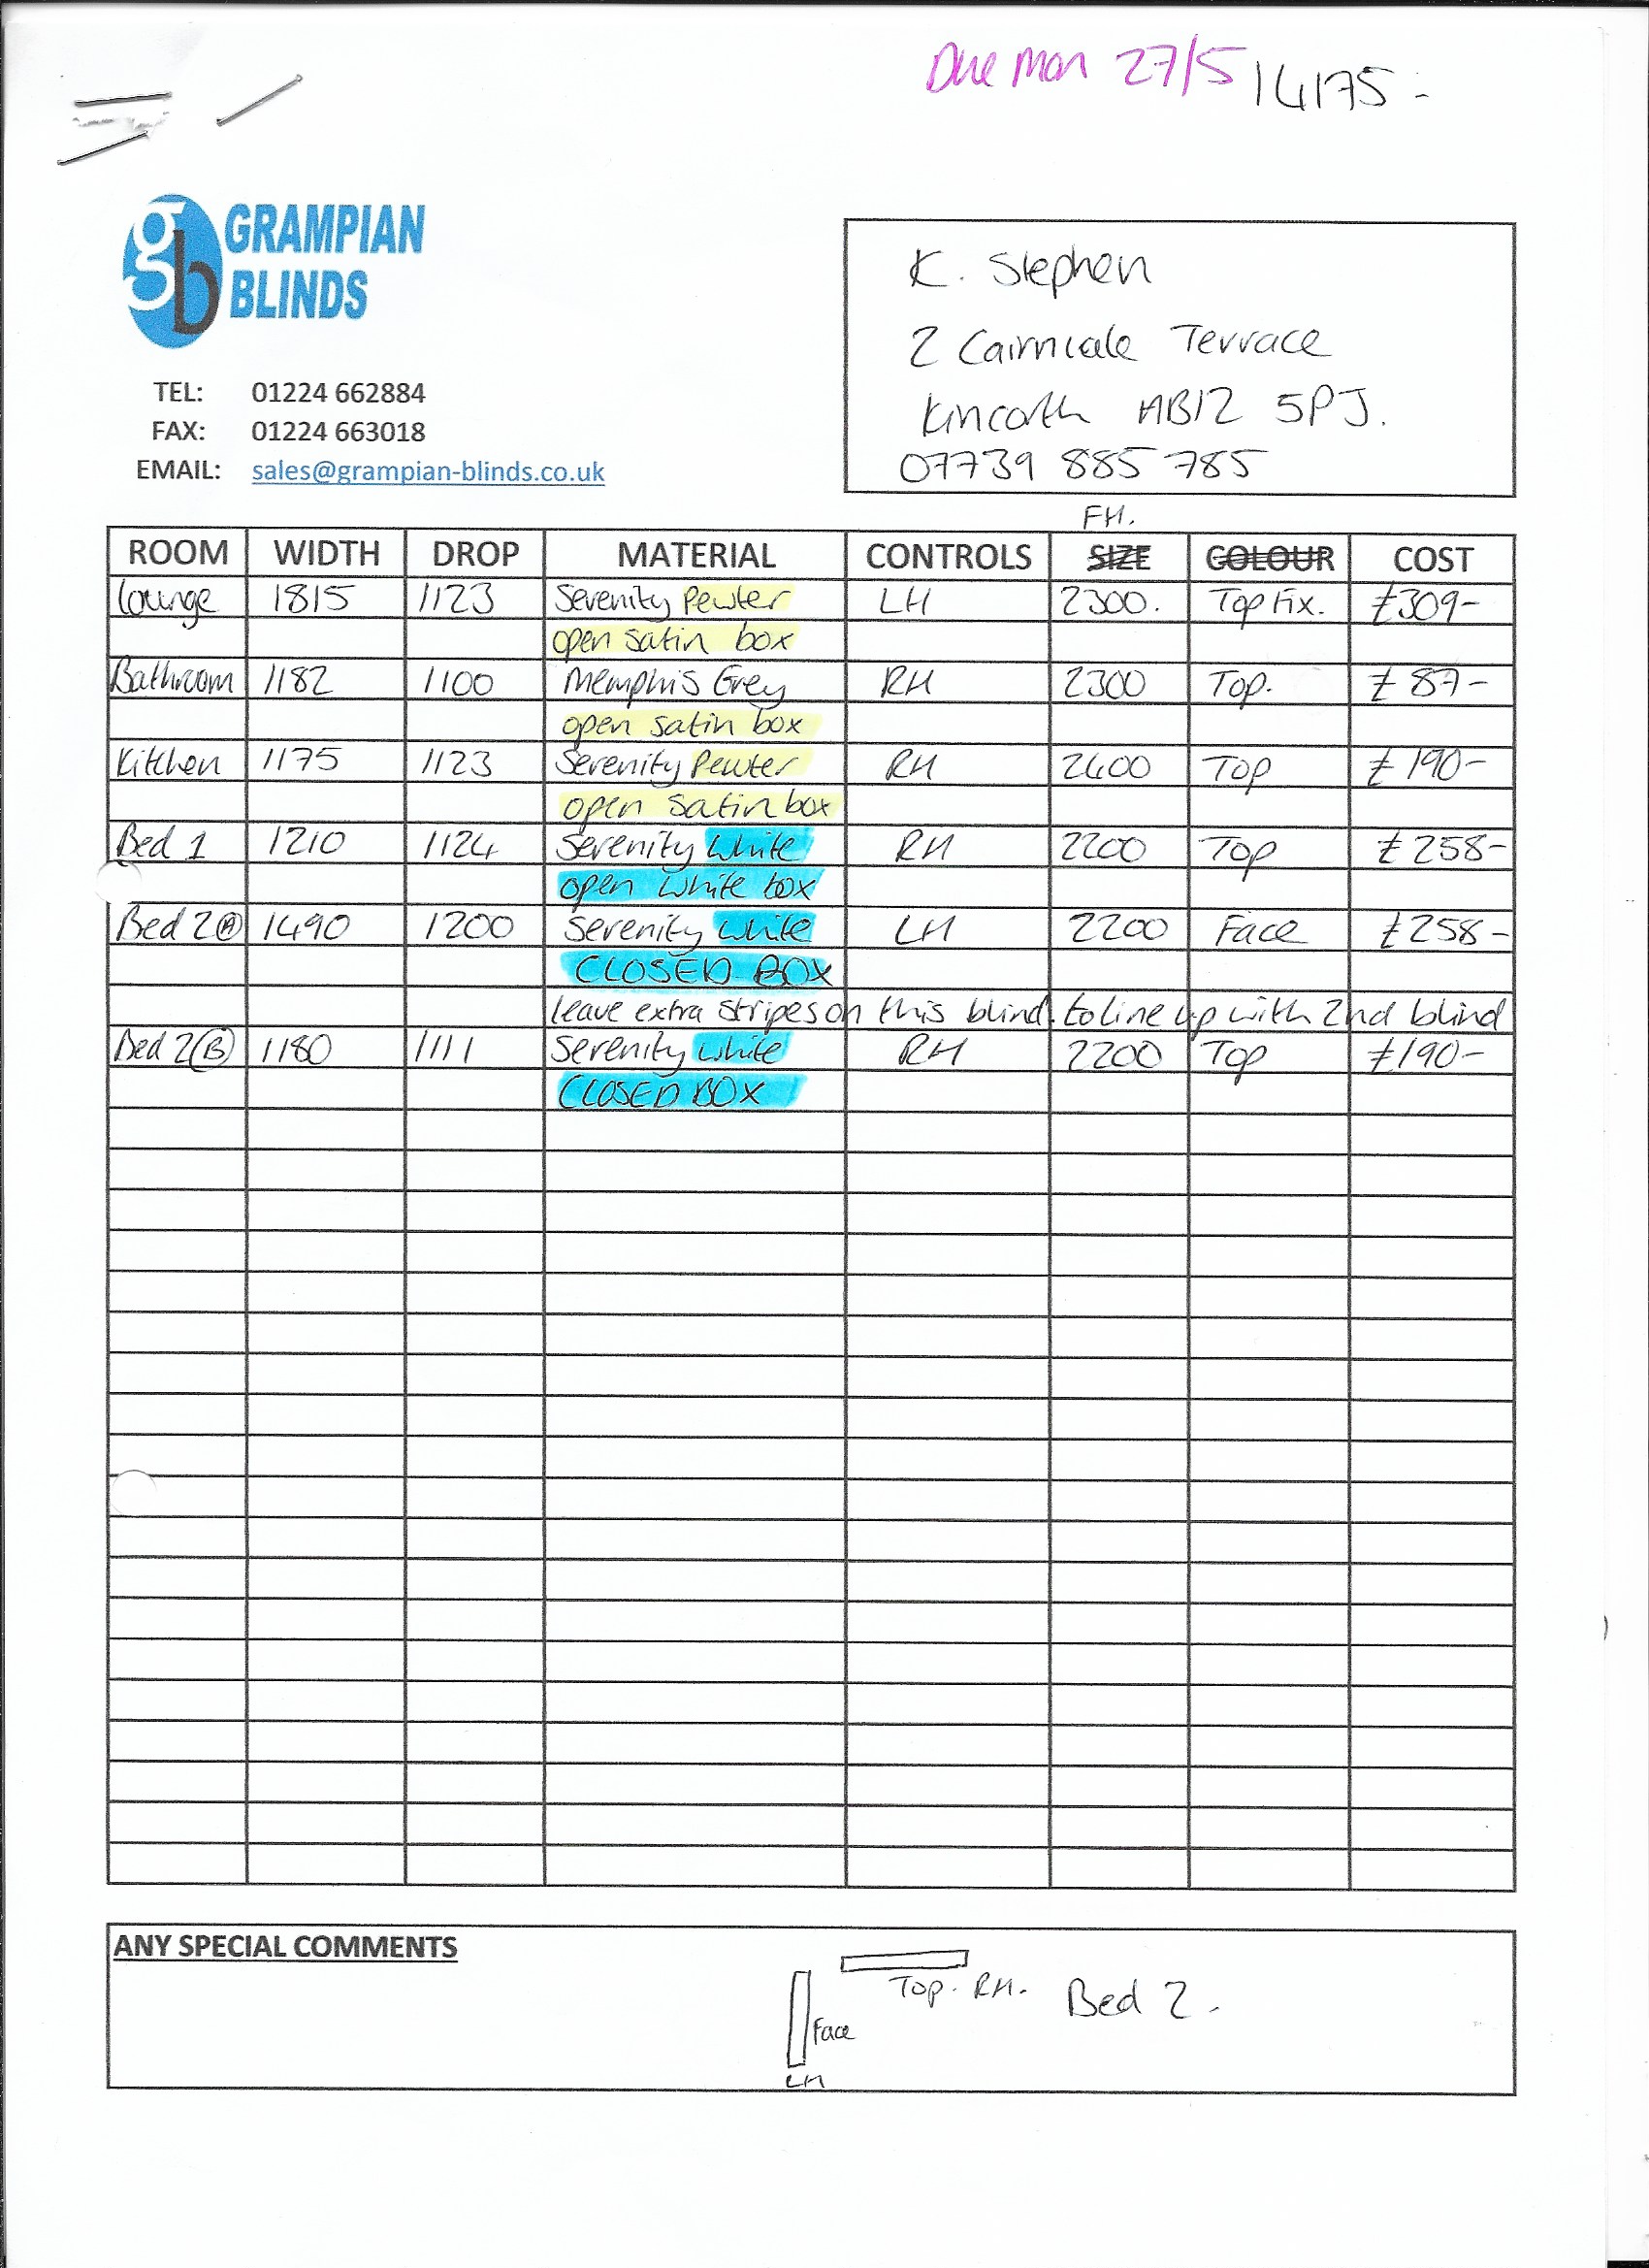 Due Mon 27/5 14175-
GRAMPIAN
BLINDS
gb
TEL: 01224 662884
FAX: 01224 663018
EMAIL: sales@grampian-blinds.co.uk
K. Stephen
2 Terrace
Kincorth AB12 5PJ.
07739 885 785
FH.
ROOM WIDTH DROP MATERIAL CONTROLS SIZE COLOUR COST
Lounge 1815 1123 Serenity Pewter LH 2300. Top Fix. £309-
open satin box
Bathroom 1182 1100 Memphis Grey RH 2300 Top. £87-
open satin box
Kitchen 1175 1123 Serenity Pewter RH 2400 Top £190-
open satin box
Bed 1 1210 1124 Serenity White RH 2200 Top £258-
open white box
Bed 2(A) 1490 1200 Serenity White LH 2200 Face £258-
CLOSED BOX
leave extra stripes on this blind. to line up with 2nd blind
Bed 2(B) 1180 1111 Serenity White RH 2200 Top £190-
CLOSED BOX
ANY SPECIAL COMMENTS
Top. RH. Bed 2.
Face
LH